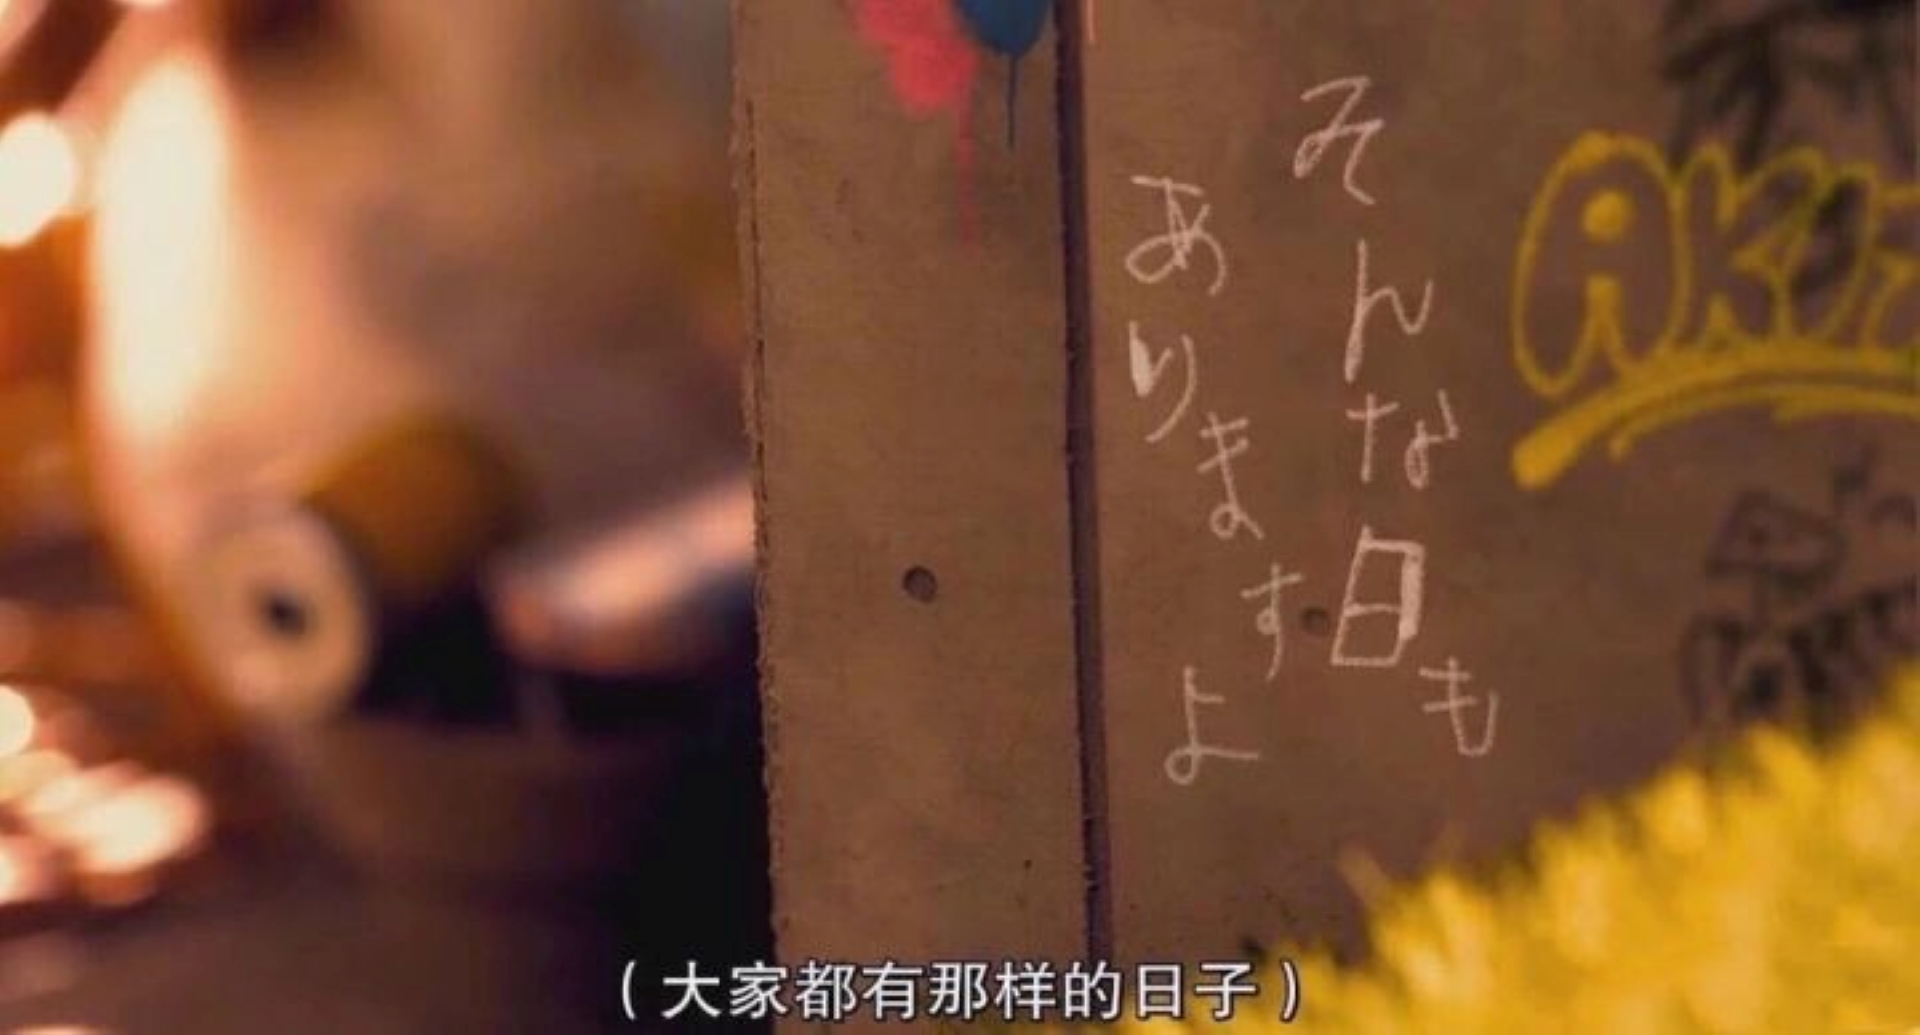 そんな日も
ありますよ
AKIT
(大家都有那样的日子)